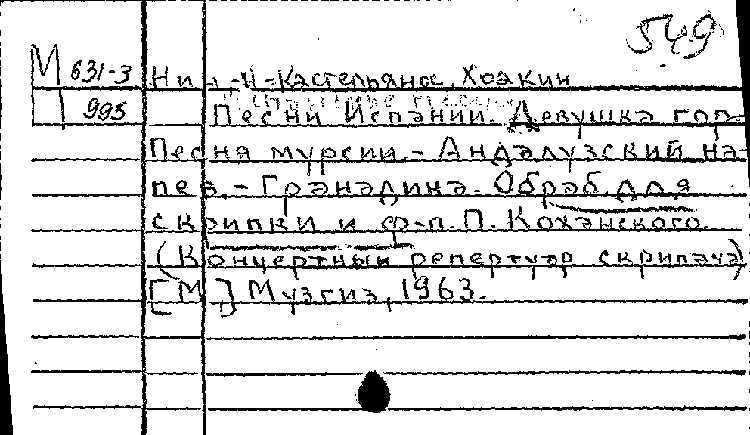 549
М 631-3 Нин-и-Кастельянос, Хоакин
995 Песни Испании. Девушка гор.-
Песня мурсии.- Андалузский на-
пев.- Гранадина. Обраб. для
скрипки и ф-п. П. Коханского.
(Концертный репертуар скрипача)
[М.] Музгиз, 1963.